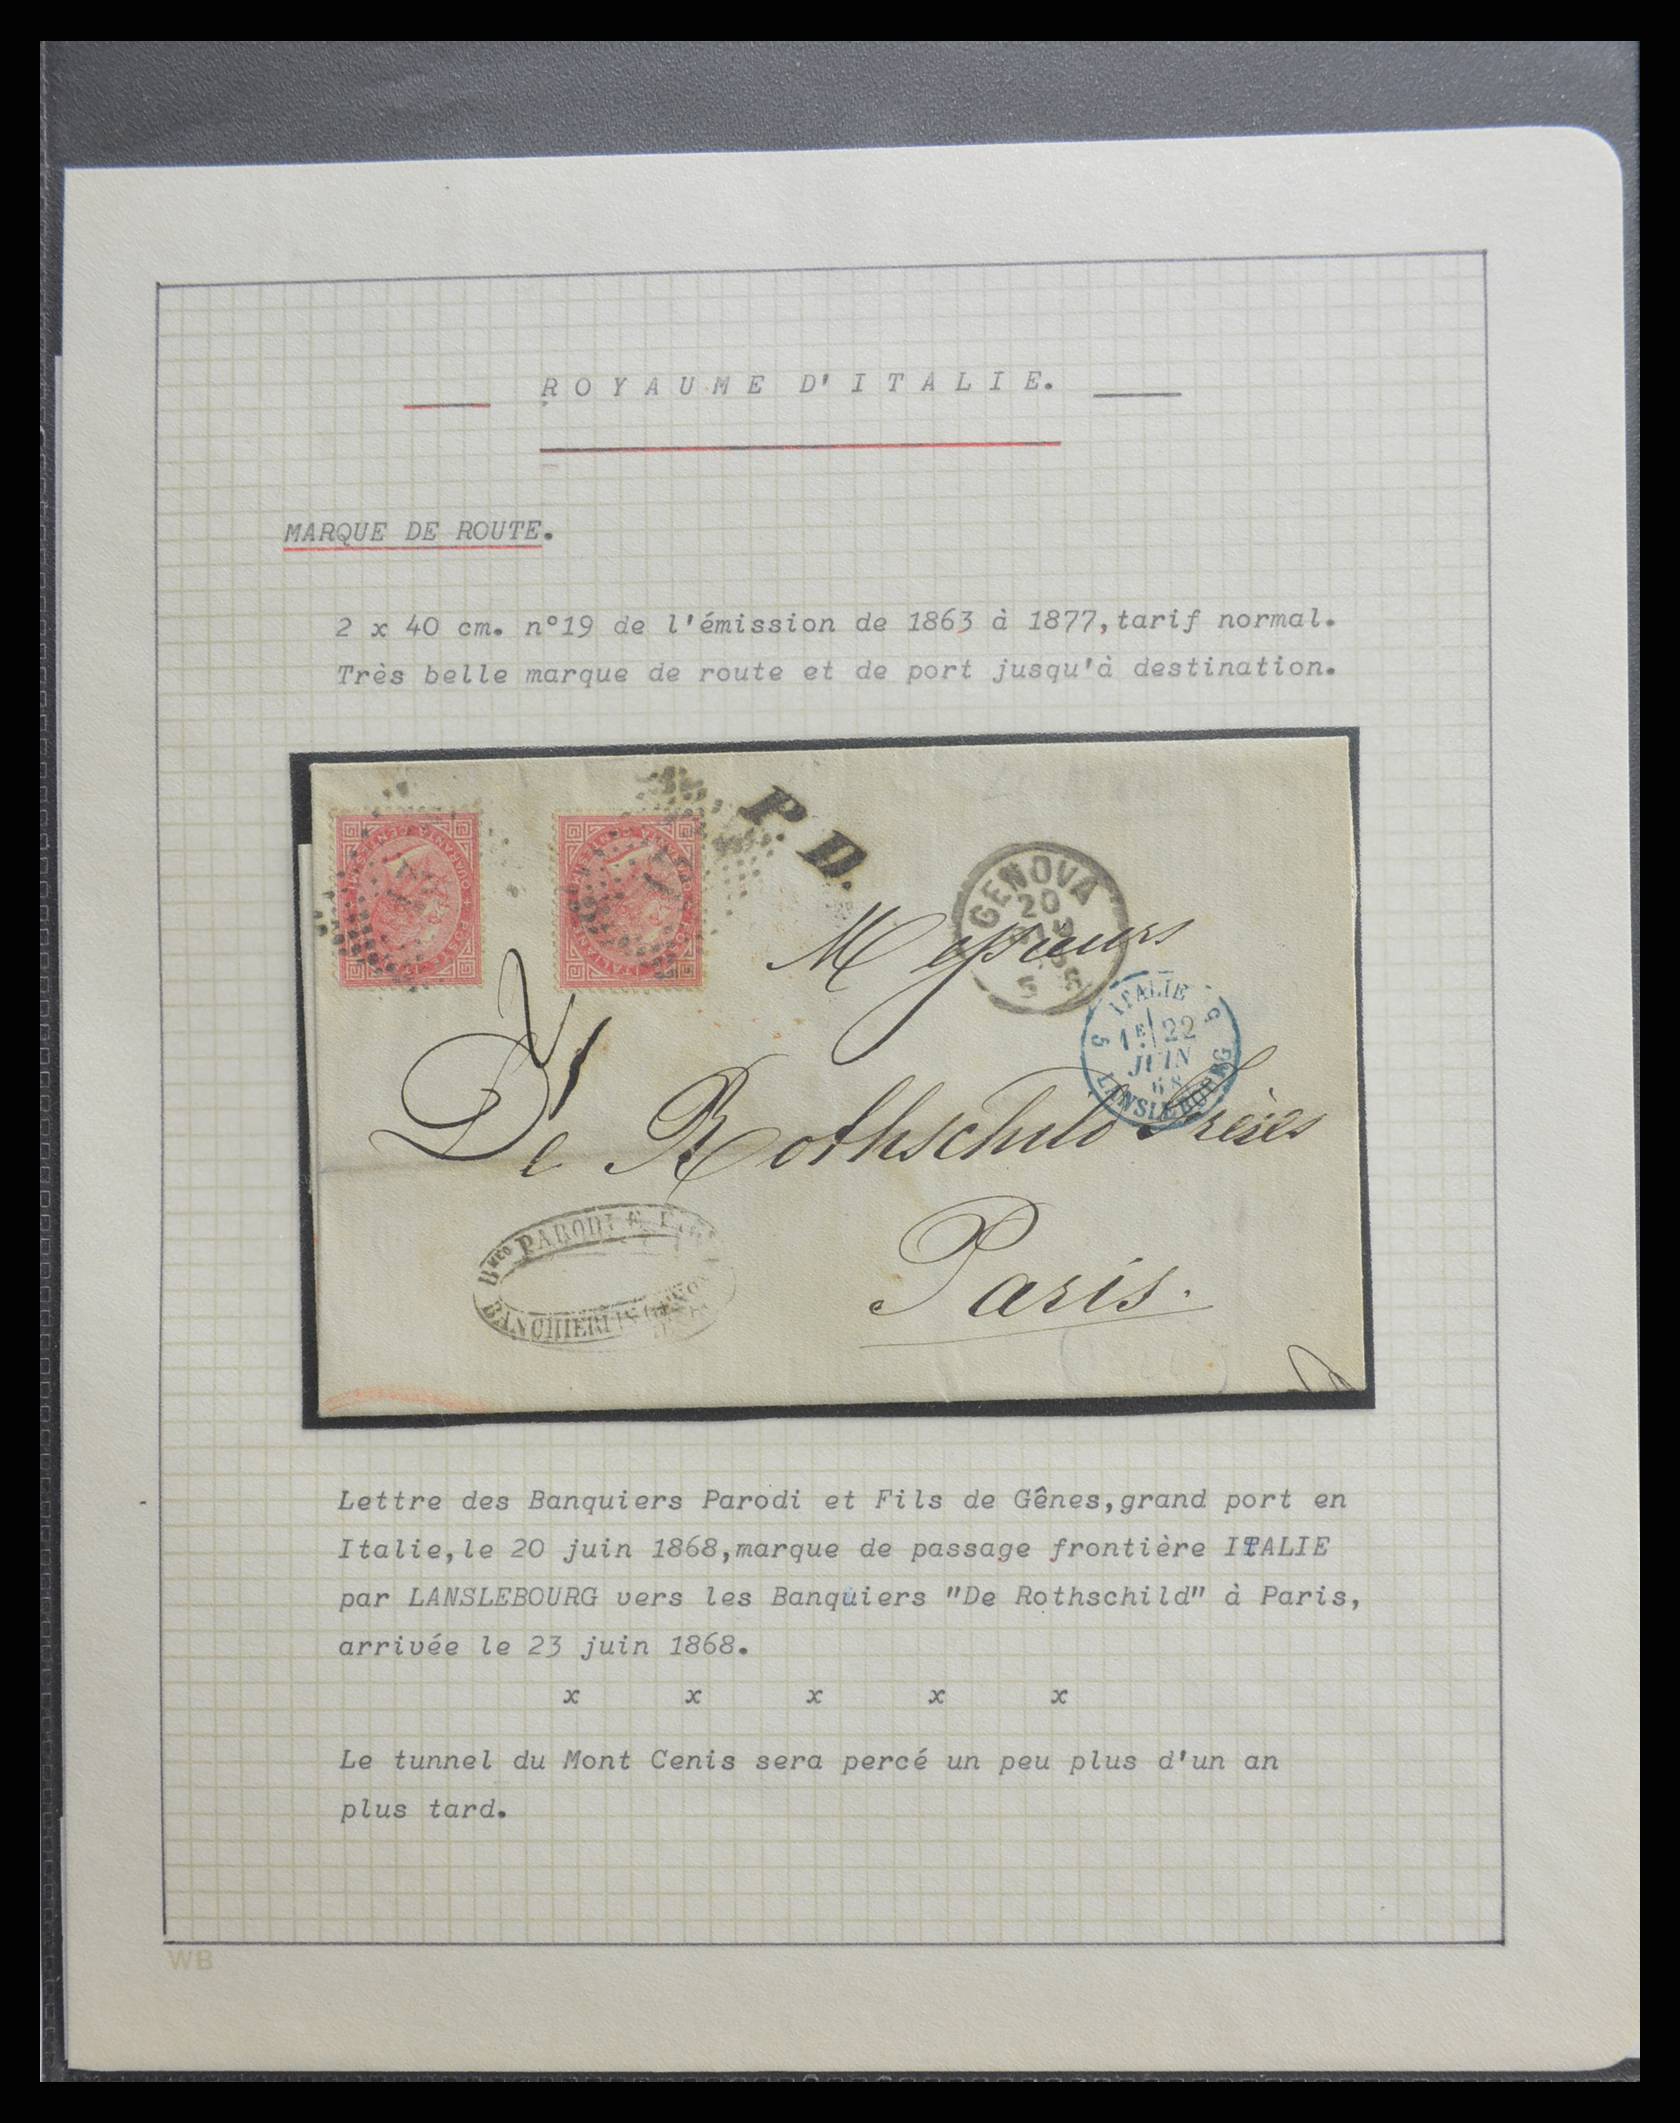 ROYAUME D'ITALIE.
MARQUE DE ROUTE.
2 x 40 cm. n°19 de l'émission de 1863 à 1877, tarif normal.
Très belle marque de route et de port jusqu'à destination.
P.D.
GENOVA
20
Messieurs
5 S
ITALIE
5 5
1E 22
JUIN
68
LANSLEBOURG
De Rothschild Frères
PARODI E
BANCHIERI IN GENOVA
Paris.
Lettre des Banquiers Parodi et Fils de Gênes, grand port en
Italie, le 20 juin 1868, marque de passage frontière ITALIE
par LANSLEBOURG vers les Banquiers "De Rothschild" à Paris,
arrivée le 23 juin 1868.
x x x x x
Le tunnel du Mont Cenis sera percé un peu plus d'un an
plus tard.
WB